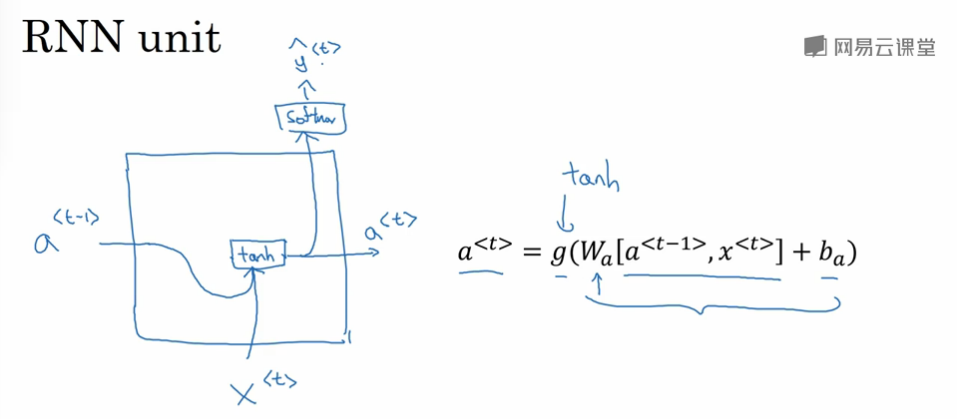 RNN unit
网易云课堂
ŷ<t>
softmax
tanh
a<t-1>
a<t>
tanh
a<t> = g(Wa[a<t-1>, x<t>] + ba)
x<t>